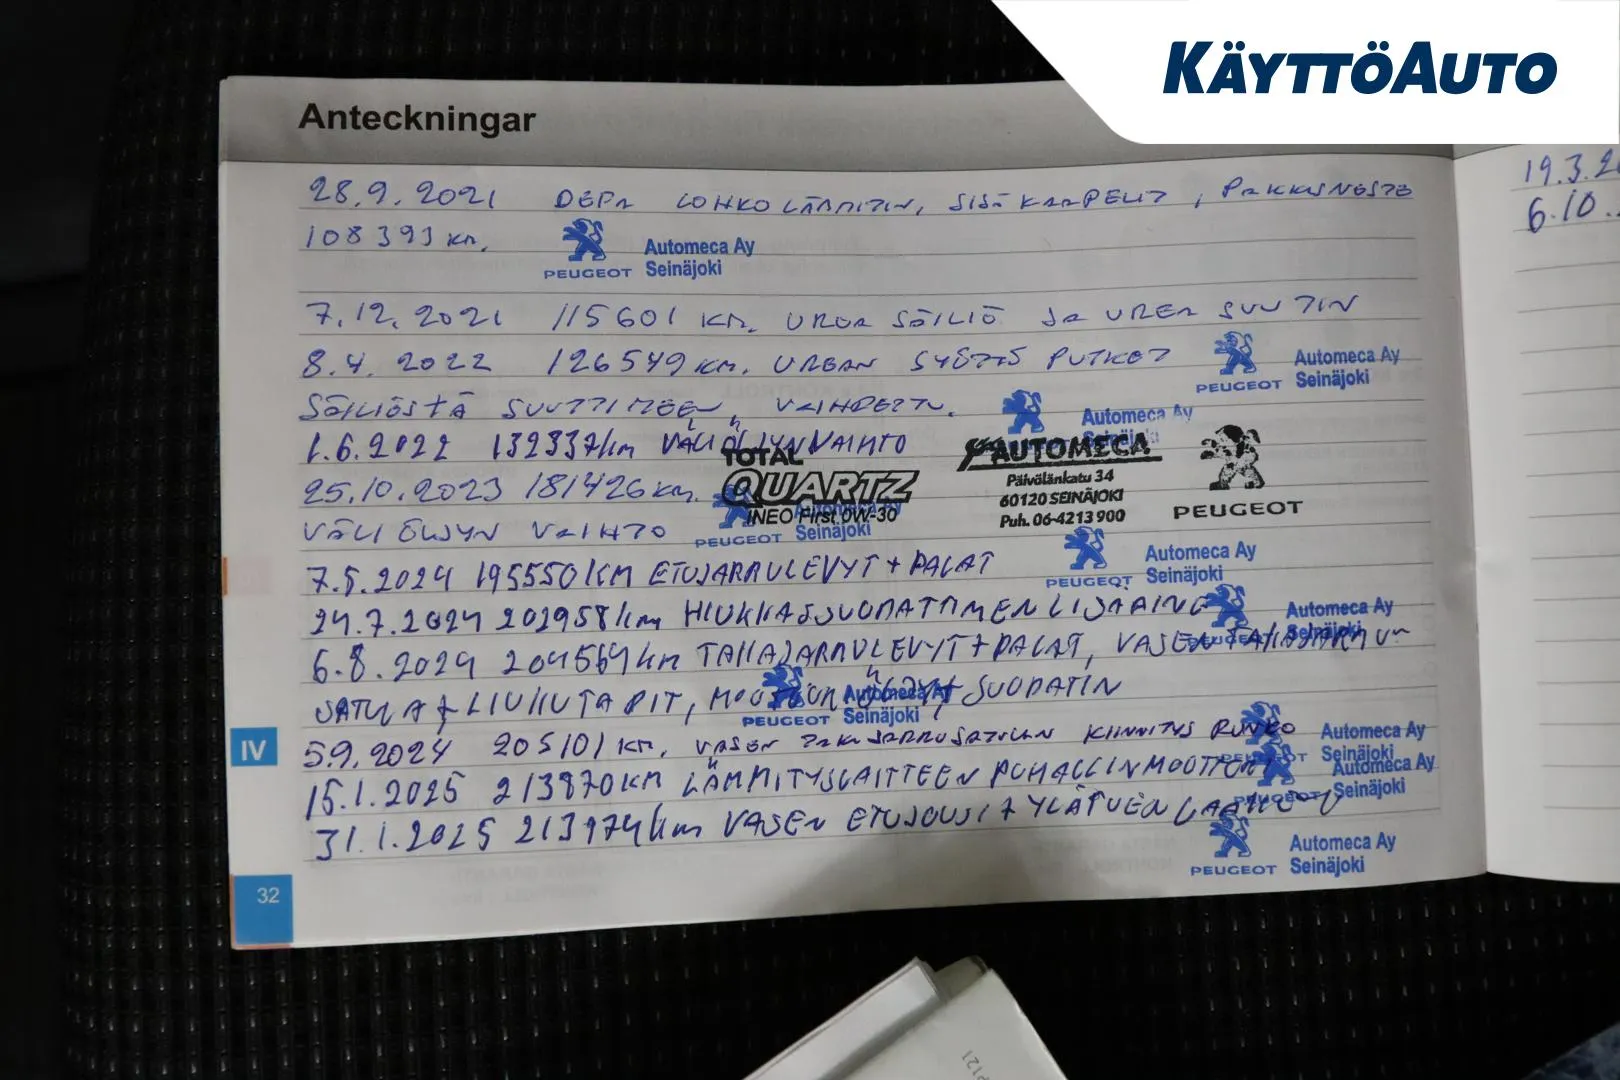 KÄYTTÖAUTO
Anteckningar
28.9.2021 DEFA LOHKOLÄMMITIN, SISÄKAAPELIT, PAKKASNESTE
108393 KM.
PEUGEOT Automeca Ay Seinäjoki
7.12.2021 115601 KM. UREA SÄILIÖ JA UREA SUUTIN
8.4.2022 126549 KM. UREAN SYÖTTÖ PUTKET
PEUGEOT Automeca Ay Seinäjoki
SÄILIÖSTÄ SUUTTIMEEN, VAIHDETTU.
Automeca Ay
1.6.2022 132337 km VÄLIÖLJYNVAIHTO
TOTAL QUARTZ INEO First 0W-30
AUTOMECA
Päivölänkatu 34
60120 SEINÄJOKI
Puh. 06-4213 900
PEUGEOT
25.10.2023 181426 KM.
VÄLIÖLJYN VAIHTO
PEUGEOT Seinäjoki
7.5.2024 195550 KM ETUJARRULEVYT + PALAT
PEUGEOT Automeca Ay Seinäjoki
24.7.2024 202958 km HIUKKASSUODATTIMEN LISÄAINE
Automeca Ay Seinäjoki
6.8.2024 204564 km TAKAJARRULEVYT + PALAT, VASEN TAKAJARRU-
SATULA + LIUKUTAPIT, MOOTTORIÖLJYT + SUODATIN
PEUGEOT Automeca Ay Seinäjoki
5.9.2024 205101 KM. VASEN TAKAJARRUSATULAN KIINNITYS RUNKO
Automeca Ay Seinäjoki
15.1.2025 213870 KM LÄMMITYSLAITTEEN PUHALLINMOOTTORI
Automeca Ay Seinäjoki
31.1.2025 213974 km VASEN ETUJOUSI + YLÄTUEN LAAKERI
PEUGEOT Automeca Ay Seinäjoki
IV
32
19.3.2
6.10.
P121